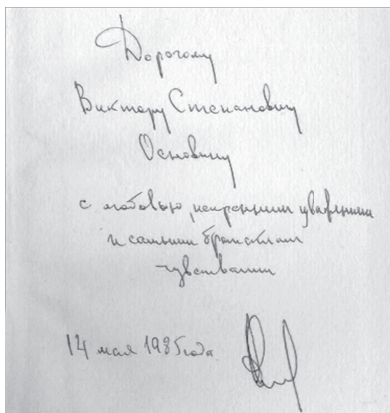 Дорогому
Виктору Степановичу
Основину
с любовью, искренним уважением
и самыми братскими
чувствами
14 мая 1985 года.